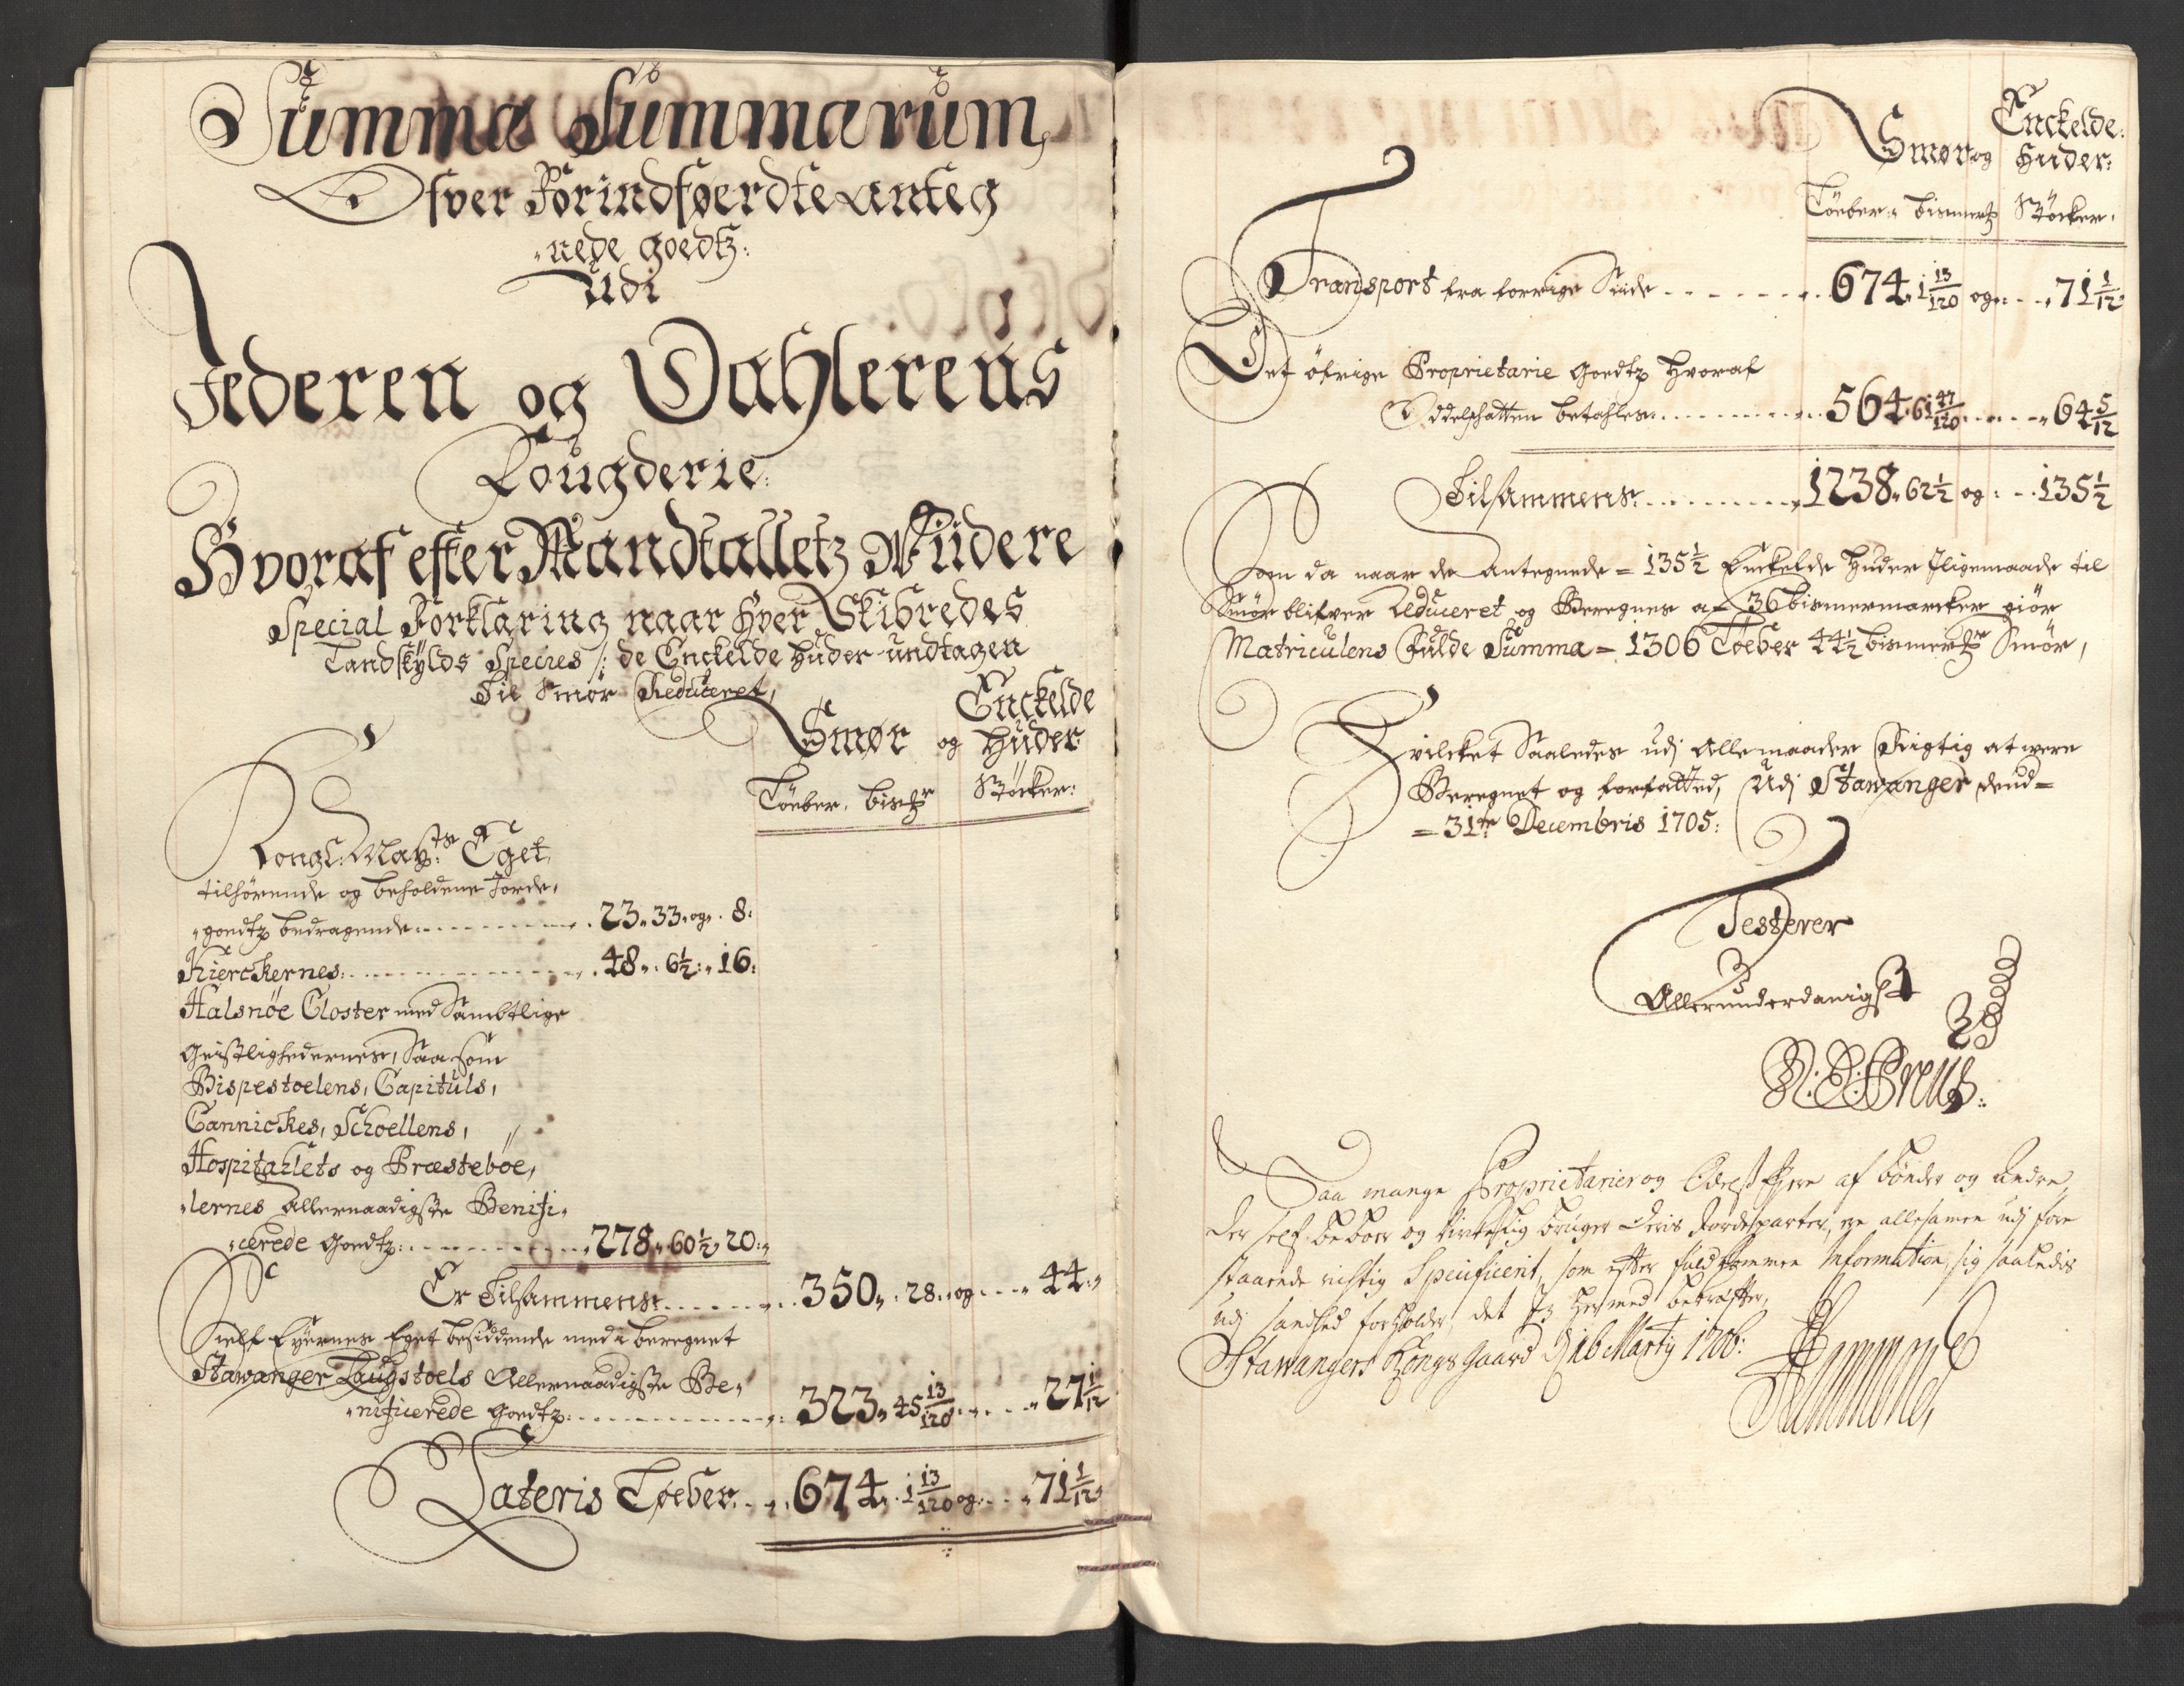 Summa Summarum,
Ofver Forindføerdte anteg
-nede Goedtz:
Udi
Jederen og Dahlerens
Fougderie:
Hvoraf efter Mandtalletz Viidere
Special Forklaring naar hver Skibredes
Landskylds Species /: de Enckelde huder undtagen
Til Smør Reduceret,
Smør og Enckelde Huder
Töeber, bismr Støcker:
Kongl: Mayts: Eget
tilhörende og beholdene Jorde-
-goedtz bedragende: 23„ 33„ og„ 8:
Kierckernes: 48„ 6½: „16:
Halsnöe Closter med Sambtlige
Geistlighedernes, Saa som
Bispestoelens, Capituls,
Cannickes, Schoellens,
Hospitahlets og Præsteböe,
-lernes Allernaadigste Benifi-
-cerede Goedtz: 278„ 60½„ 20:„
Er Tilsammens: 350„ 28„ og 44:„
Sielf Eyernes Eget besiddende med beregnet
Stawanger Laugstoels Allernaadigste Be-
-nificerede Goedtz: 323„ 45 13/120 27 1/12
Lateris Töeber 674„ 1 13/120 og 71 1/12
Smør og Enckelde: Huder:
Töeber„ bismerk Støcker.
Transport fra forrige Siide 674„ 1 13/120 og 71 1/12
Det öfrige Proprietarie Goedtz hvoraf
Oddelskatten betahles: 564„ 61 47/120 64 5/12
Tilsammens: 1238„ 62½ og: 135½
Som da naar de Antegnede = 135½ Enckelde Huder Iligemaade til
Smör blifver Reduceret og Beregnes a= 36 bismermarcker giör
Matriculens Fulde Summa = 1306 Töeber 44½ bismerkr Smör,
Hvilcket Saaledes udj Alle maader Rigtig at were
Beregnet og forfatted, Udj Stawanger dend=
=31te Decembris 1705:
Testerer
Allerunderdanigst
Saa mange Proprietarier og Odels Eyere af bönder og Andre
der self beboer og virkelig bruger deris Jordeparter, ere allesamen udj fore
staaende rigtig Specificerit, som efter fuldkommen Information sig saaledis
udj sandhed forholder, det Jeg hermed bekræfter,
Stawangers Kongsgaard D 16 Marty 1706: